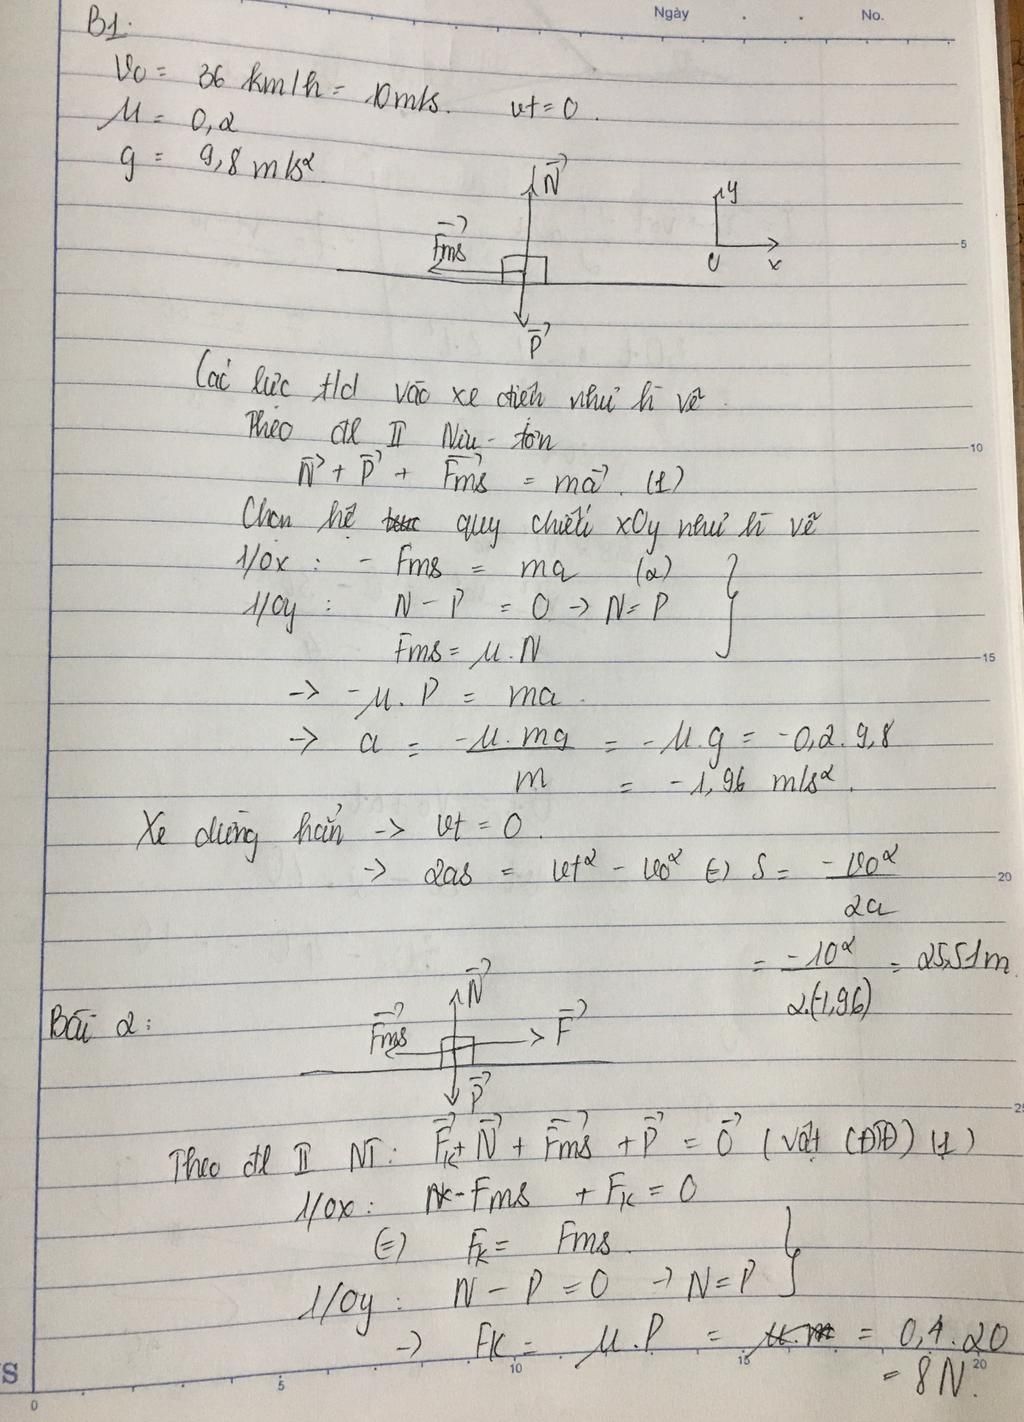 Ngày . . No.
B1:
v0 = 36 km/h = 10m/s. vt = 0.
μ = 0,2
g = 9,8 m/s²
N⃗
y
Fms⃗
5
0 x
P⃗
Các lực t/d vào xe điện như h vẽ.
Theo đl II Niu-tơn
10
N⃗ + P⃗ + Fms⃗ = ma⃗. (1)
Chọn hệ quy chiếu xOy như h vẽ
1/Ox: - Fms = ma (2)
1/Oy: N - P = 0 → N = P
Fms = μ.N
15
→ -μ.P = ma.
→ a = -μ.mg / m = -μ.g = -0,2.9,8
= -1,96 m/s².
Xe dừng hẳn → vt = 0.
→ 2as = vt² - v0² (=) S = -v0² / 2a
20
= -10² / 2.(-1,96) = 25,51m
Bài 2:
N⃗
Fms⃗ F⃗
P⃗
25
Theo đl II NT: Fk⃗ + N⃗ + Fms⃗ + P⃗ = 0⃗ (vật CĐTĐ) (1)
1/Ox: -Fms + Fk = 0
(=) Fk = Fms.
1/Oy: N - P = 0 → N = P
→ Fk = μ.P = = 0,4.20
= 8N.
S
0 5 10 15 20